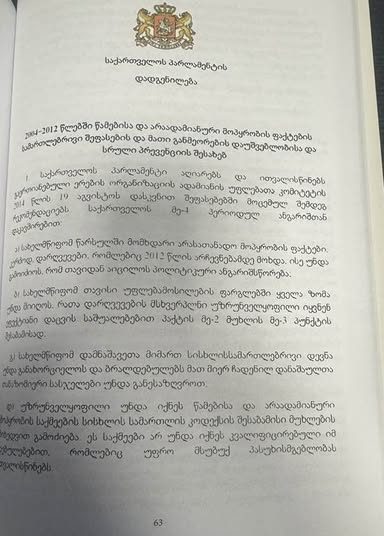 საქართველოს პარლამენტის
დადგენილება
2004-2012 წლებში წამებისა და არაადამიანური მოპყრობის ფაქტების
სამართლებრივი შეფასების და მათი განმეორების დაუშვებლობისა და
სრული პრევენციის შესახებ
1. საქართველოს პარლამენტი აღიარებს და ითვალისწინებს
გაერთიანებული ერების ორგანიზაციის ადამიანის უფლებათა კომიტეტის
2014 წლის 19 აგვისტოს დასკვნით შეფასებებში მოცემულ შემდეგ
რეკომენდაციებს საქართველოს მე-4 პერიოდულ ანგარიშთან
დაკავშირებით:
ა) სახელმწიფომ წარსულში მომხდარი არასათანადო მოპყრობის ფაქტები,
კერძოდ დარღვევები, რომლებიც 2012 წლის არჩევნებამდე მოხდა, ისე უნდა
გამოიძიოს, რომ თავიდან აიცილოს პოლიტიკური ანგარიშსწორება.
ბ) სახელმწიფომ თავისი უფლებამოსილების ფარგლებში ყველა ზომა
უნდა მიიღოს, რათა დარღვევების მსხვერპლნი უზრუნველყოფილი იყვნენ
დაცვის საშუალებებით პაქტის მე-2 მუხლის მე-3 პუნქტის
შესაბამისად;
გ) სახელმწიფომ დამნაშავეთა მიმართ სისხლისსამართლებრივი დევნა
უნდა განახორციელოს და ბრალდებულებს მათ მიერ ჩადენილ დანაშაულთა
თანაზომიერი სასჯელები უნდა განესაზღვროთ;
დ) უზრუნველყოფილი უნდა იქნეს წამებისა და არაადამიანური
მოპყრობის საქმეების სისხლის სამართლის კოდექსის შესაბამისი მუხლების
მიხედვით გამოძიება. ეს საქმეები არ უნდა იქნეს კვალიფიცირებული იმ
მუხლებით, რომლებიც უფრო მსუბუქ პასუხისმგებლობას
ითვალისწინებს.
63